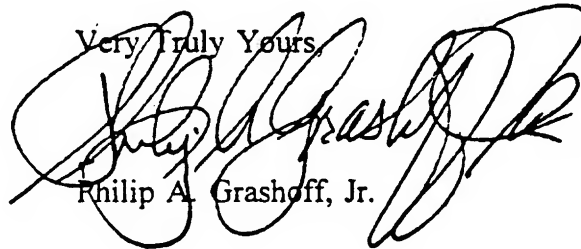 Very Truly Yours,
Philip A Grashoff Jr
Philip A. Grashoff, Jr.